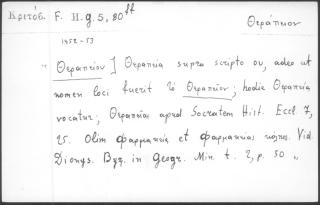 Κριτόβ. F. H. g. 5, 80ff
Θεράπειον
1952-53
" Θεραπείον ] Θεραπεια supra scripto ου, adeo ut
nomen loci fuerit τὸ Θεραπεῖον; hodie Θεραπειά
vocatur; Θεραπείας apud Socratem Hist. Eccl 7,
25. Olim Φαρμακία et Φαρμακίας κολπος. Vid
Dionys. Byz. in Geogr. Min t. 2, p. 50 "